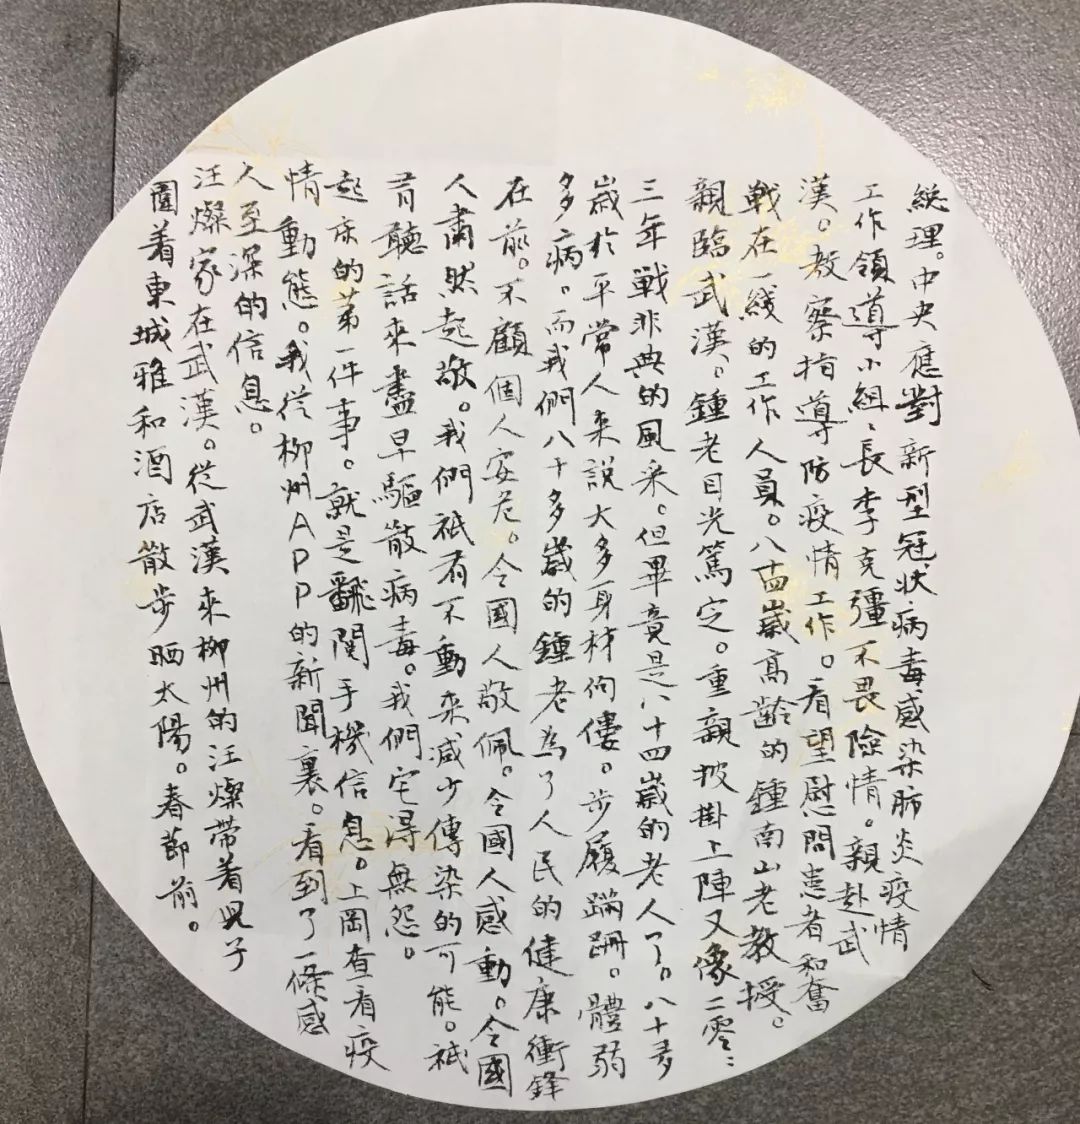 總理。中央應對新型冠狀病毒感染肺炎疫情
工作領導小組組長李克彊不畏險情。親赴武
漢。教察指導防疫情工作。看望慰問患者和奮
戰在一綫的工作人員。八十四歲高齡的鍾南山老教授。
親臨武漢。鍾老目光篤定。重親披掛上陣又像二零零
三年戰非典的風采。但畢竟是八十四歲的老人了。八十多
歲於平常人來說大多身材佝僂。步履蹣跚。體弱
多病。而我們八十多歲的鍾老為了人民的健康衝鋒
在前。不顧個人安危。令國人敬佩。令國人感動。令國
人肅然起敬。我們祇有不動來減少傳染的可能。祇
有聽話來盡早驅散病毒。我們宅得無怨。
起床的第一件事。就是翻閱手機信息。上岡查看疫
情動態。我從柳州APP的新聞裏。看到了一條感
人至深的信息。
汪燦家在武漢。從武漢來柳州的汪燦帶着兒子
圍着東城雅和酒店散步晒太陽。春節前。